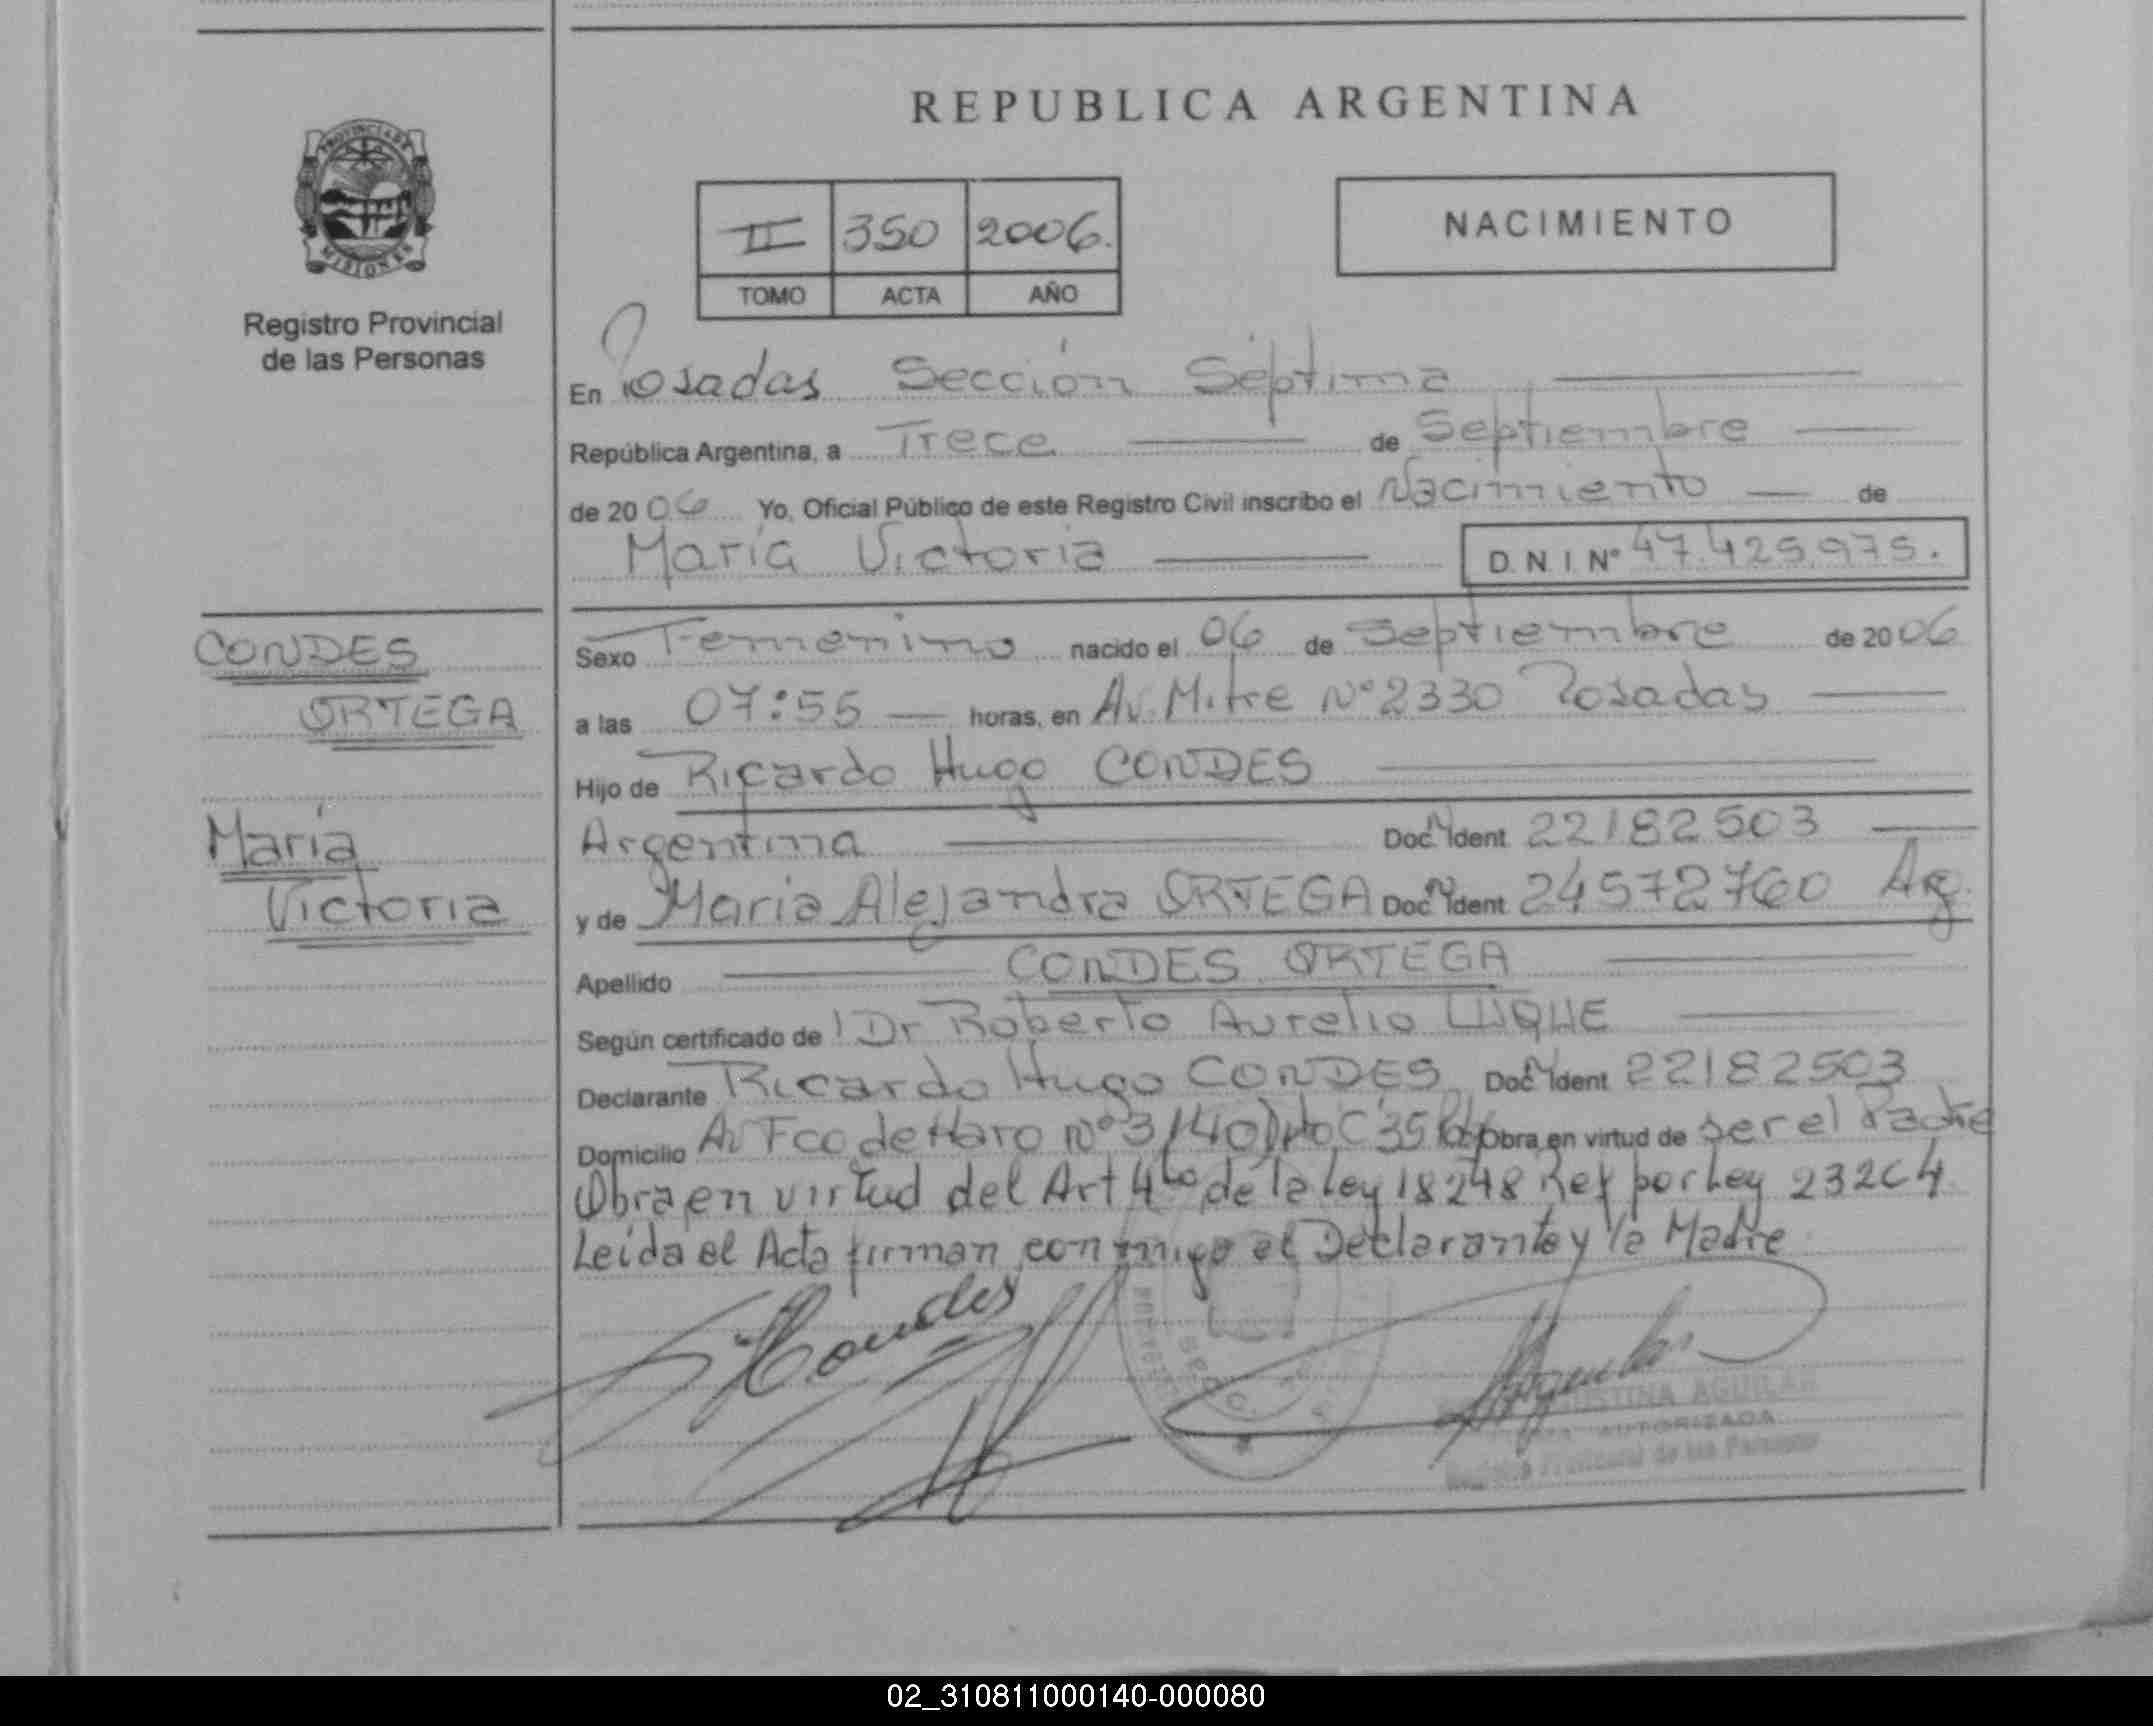 REPUBLICA ARGENTINA
PROVINCIA DE
MISIONES
Registro Provincial
de las Personas
II 350 2006.
TOMO ACTA AÑO
NACIMIENTO
En Posadas Sección Séptima
República Argentina, a Trece de Septiembre
de 2006 Yo, Oficial Público de este Registro Civil inscribo el Nacimiento de
María Victoria D.N.I.Nº 47.425.975.
CONDES
ORTEGA
María
Victoria
Sexo Femenino nacido el 06 de Septiembre de 2006
a las 07:55 horas, en Av. Mitre Nº 2330 Posadas
Hijo de Ricardo Hugo CONDES
Argentina Doc. Ident 22182503
y de María Alejandra ORTEGA Doc. Ident 24572760 Arg.
Apellido CONDES ORTEGA
Según certificado de Dr Roberto Aurelio LUQUE
Declarante Ricardo Hugo CONDES Doc. Ident 22182503
Domicilio Av Fco de Haro Nº 3140 Obra en virtud de ser el Padre
Obra en virtud del Art 4to de la Ley 18248 Ref por Ley 23264
Leída el Acta firman conmigo el Declarante y la Madre
AGUSTINA AGUILAR
AUTORIZADA
Registro Provincial de las Personas
02_310811000140-000080